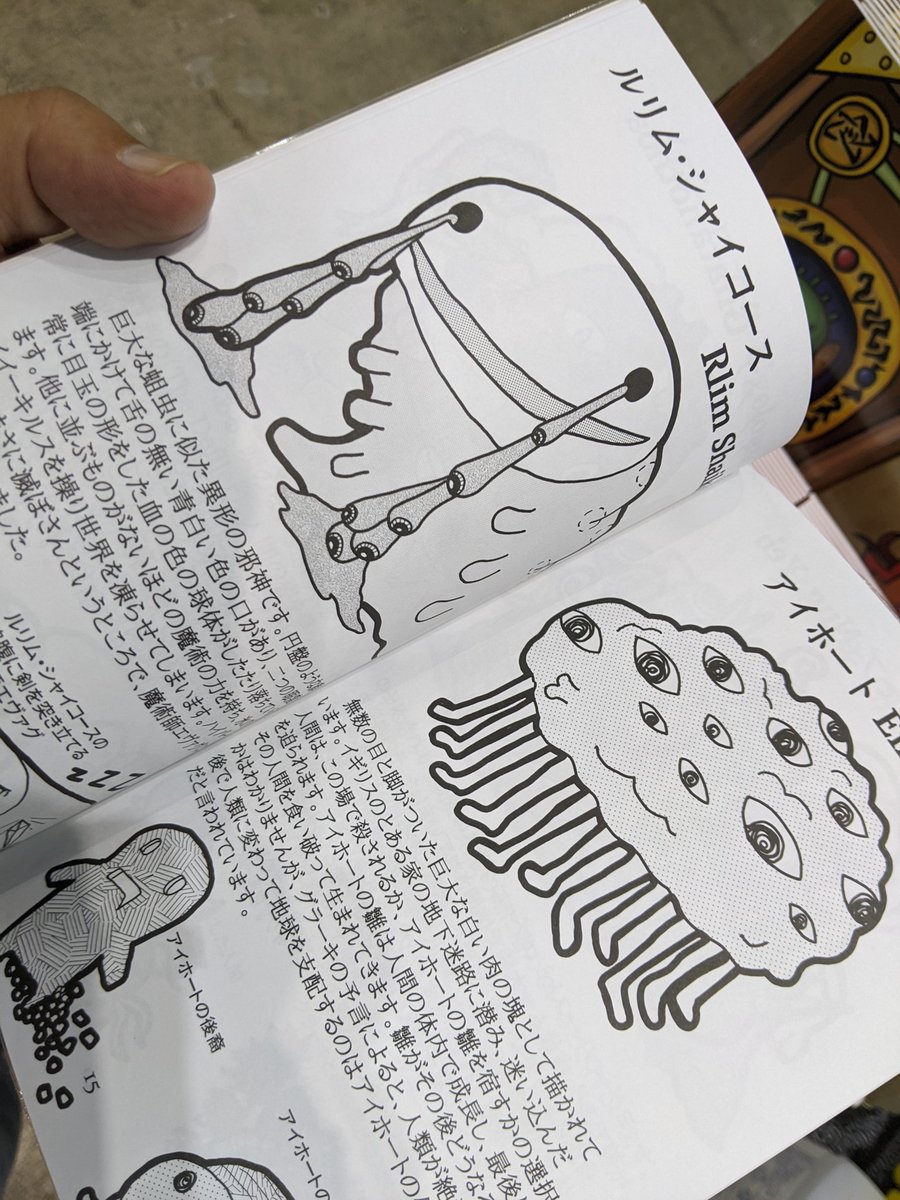 ルリム・シャイコース
Rlim Shai
巨大な蛆虫に似た異形の邪神です。円盤のような
端にかけて舌の無い青白い色の口があり、二つの眼
常に目玉の形をした血の色の球体がしたたり落ち
ます。他に並ぶものがないほどの魔術の力を持ち、
イーキルスを操り世界を凍らせてしまいます。
さに滅ぼさんというところで、魔術師エヴァグ
ました。
ルリム・シャイコースの
腹に剣を突き立てる
エヴァグ
zzz
アイホート
Ei
無数の目と脚がついた巨大な白い肉の塊として描かれて
います。イギリスのとある家の地下迷路に潜み、迷い込んだ
人間は、この場で殺されるか、アイホートの雛を宿すかの選択
を迫られます。アイホートの雛は人間の体内で成長し、最後
その人間を食い破って生まれてきます。雛がその後どうなる
かはわかりませんが、グラーキの予言によると、人類が絶
後で人類に変わって地球を支配するのはアイホートの
だと言われています。
アイホートの後裔
15
アイホートの